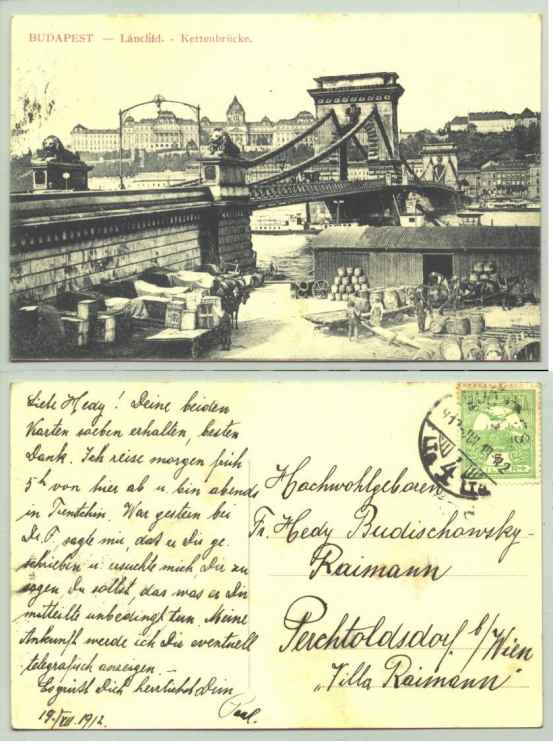 BUDAPEST — Lánchíd. - Kettenbrücke.
Liebe Hedy! Deine beiden
Karten soeben erhalten, besten
Dank. Ich reise morgen früh
5h von hier ab u. bin abends
in Trentschin. War gestern bei
Dr. P. sagte mir, dass er Dir ge-
schrieben u. ersuchte mich, Dir zu
sagen Du sollst, das was er Dir
mitteilte unbedingt tun. Meine
Ankunft werde ich Dir eventuell
telegrafisch anzeigen. —
Es grüßt Dich herzlichst Dein
Paul.
19./VII. 1912.
Hochwohlgeboren
Fr. Hedy Budischowsky-
Raimann
Perchtoldsdorf b/Wien
"Villa Raimann"